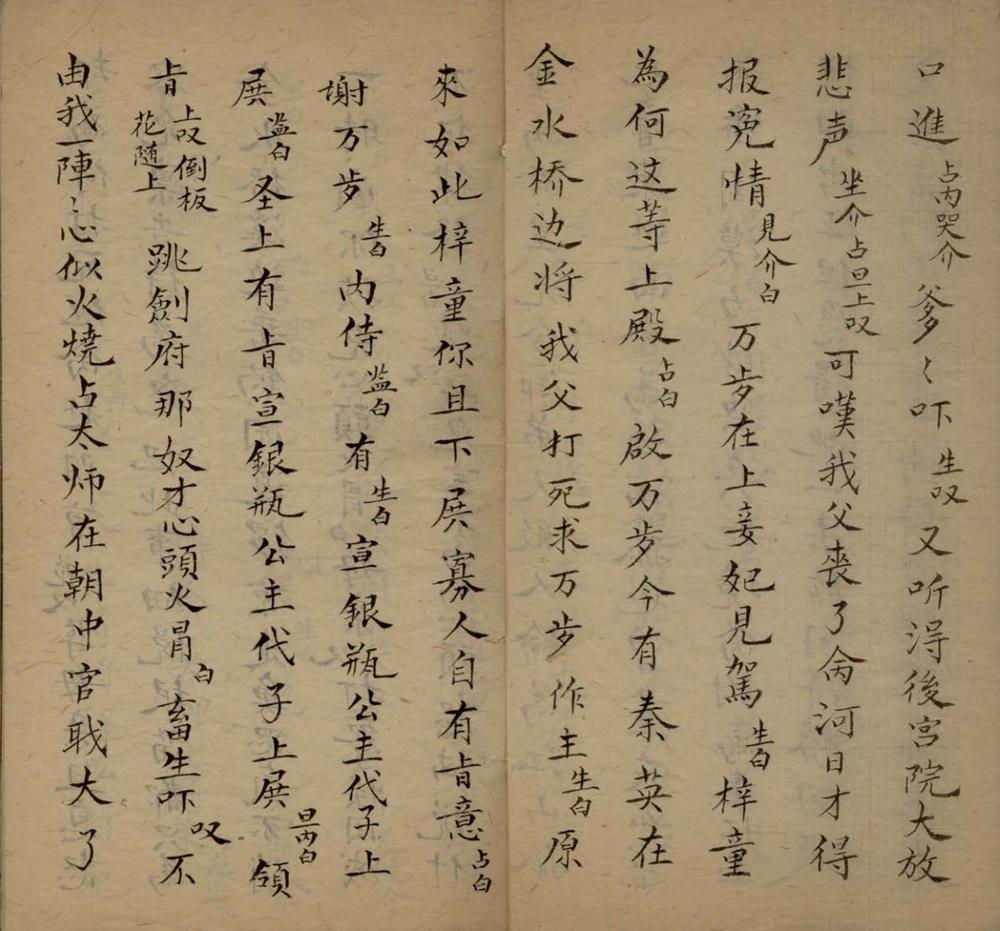 口進占内哭介爹〻吓生叹又听淂後宮院大放
悲声坐介占旦上叹可嘆我父喪了命河日才得
报寃情見介白万步在上妾妃見駕生白梓童
為何这等上殿占白啟万步今有秦英在
金水桥边将我父打死求万步作主生白原
來如此梓童你且下㞡寡人自有㫖意占白
谢万步生白内侍监白有生白宣銀瓶公主代子上
㞡监白圣上有㫖宣銀瓶公主代子上㞡旦内白領
㫖上叹倒板花随上跳劍府那奴才心頭火冒白畜生吓叹不
由我一陣〻心似火燒占太师在朝中官戝大了